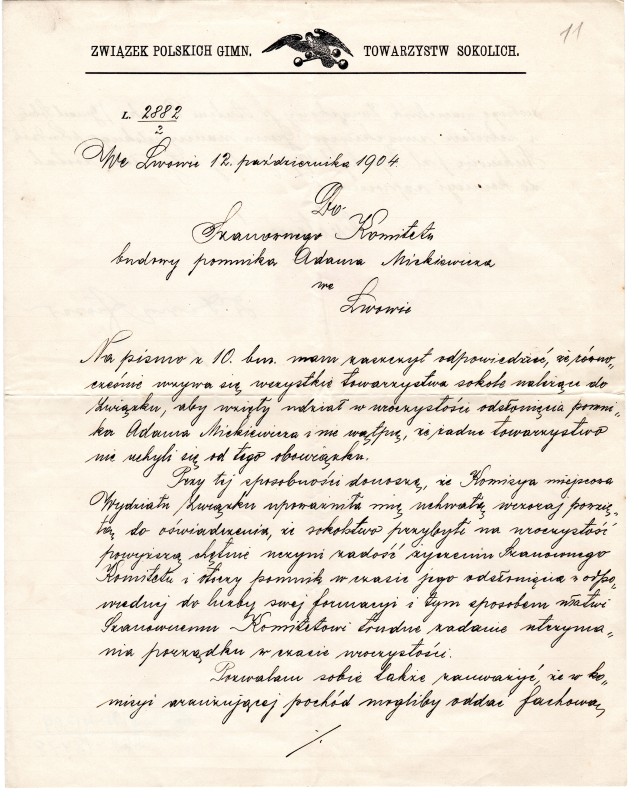 11
ZWIĄZEK POLSKICH GIMN. TOWARZYSTW SOKOLICH.
L. 2882
2
We Lwowie 12. października 1904.
Do
Szanownego Komitetu
budowy pomnika Adama Mickiewicza
we
Lwowie
Na pismo z 10. bm. mam zaszczyt odpowiedzieć, że równo„
cześnie wzywa się wszystkie towarzystwa sokole należące do
Związku, aby wzięły udział w uroczystości odsłonięcia pomni„
ka Adama Mickiewicza i nie wątpię, że żadne towarzystwo
nie uchyli się od tego obowiązku.
Przy tej sposobności donoszę, że Komisya miejscowa
Wydziału Związku upoważniła mię uchwałą wczoraj powzię„
tą, do oświadczenia, że sokolstwo przybyłe na uroczystość
powyższą chętnie uczyni zadość życzeniu Szanownego
Komitetu i otoczy pomnik w czasie jego odsłonięcia w odpo„
wiedniej do liczby swej formacyi i tym sposobem ułatwi
Szanownemu Komitetowi trudne zadanie utrzyma„
nia porządku w czasie uroczystości.
Pozwalam sobie także zauważyć, że w ko„
misyi aranżującej pochód mogliby oddać fachową
./.